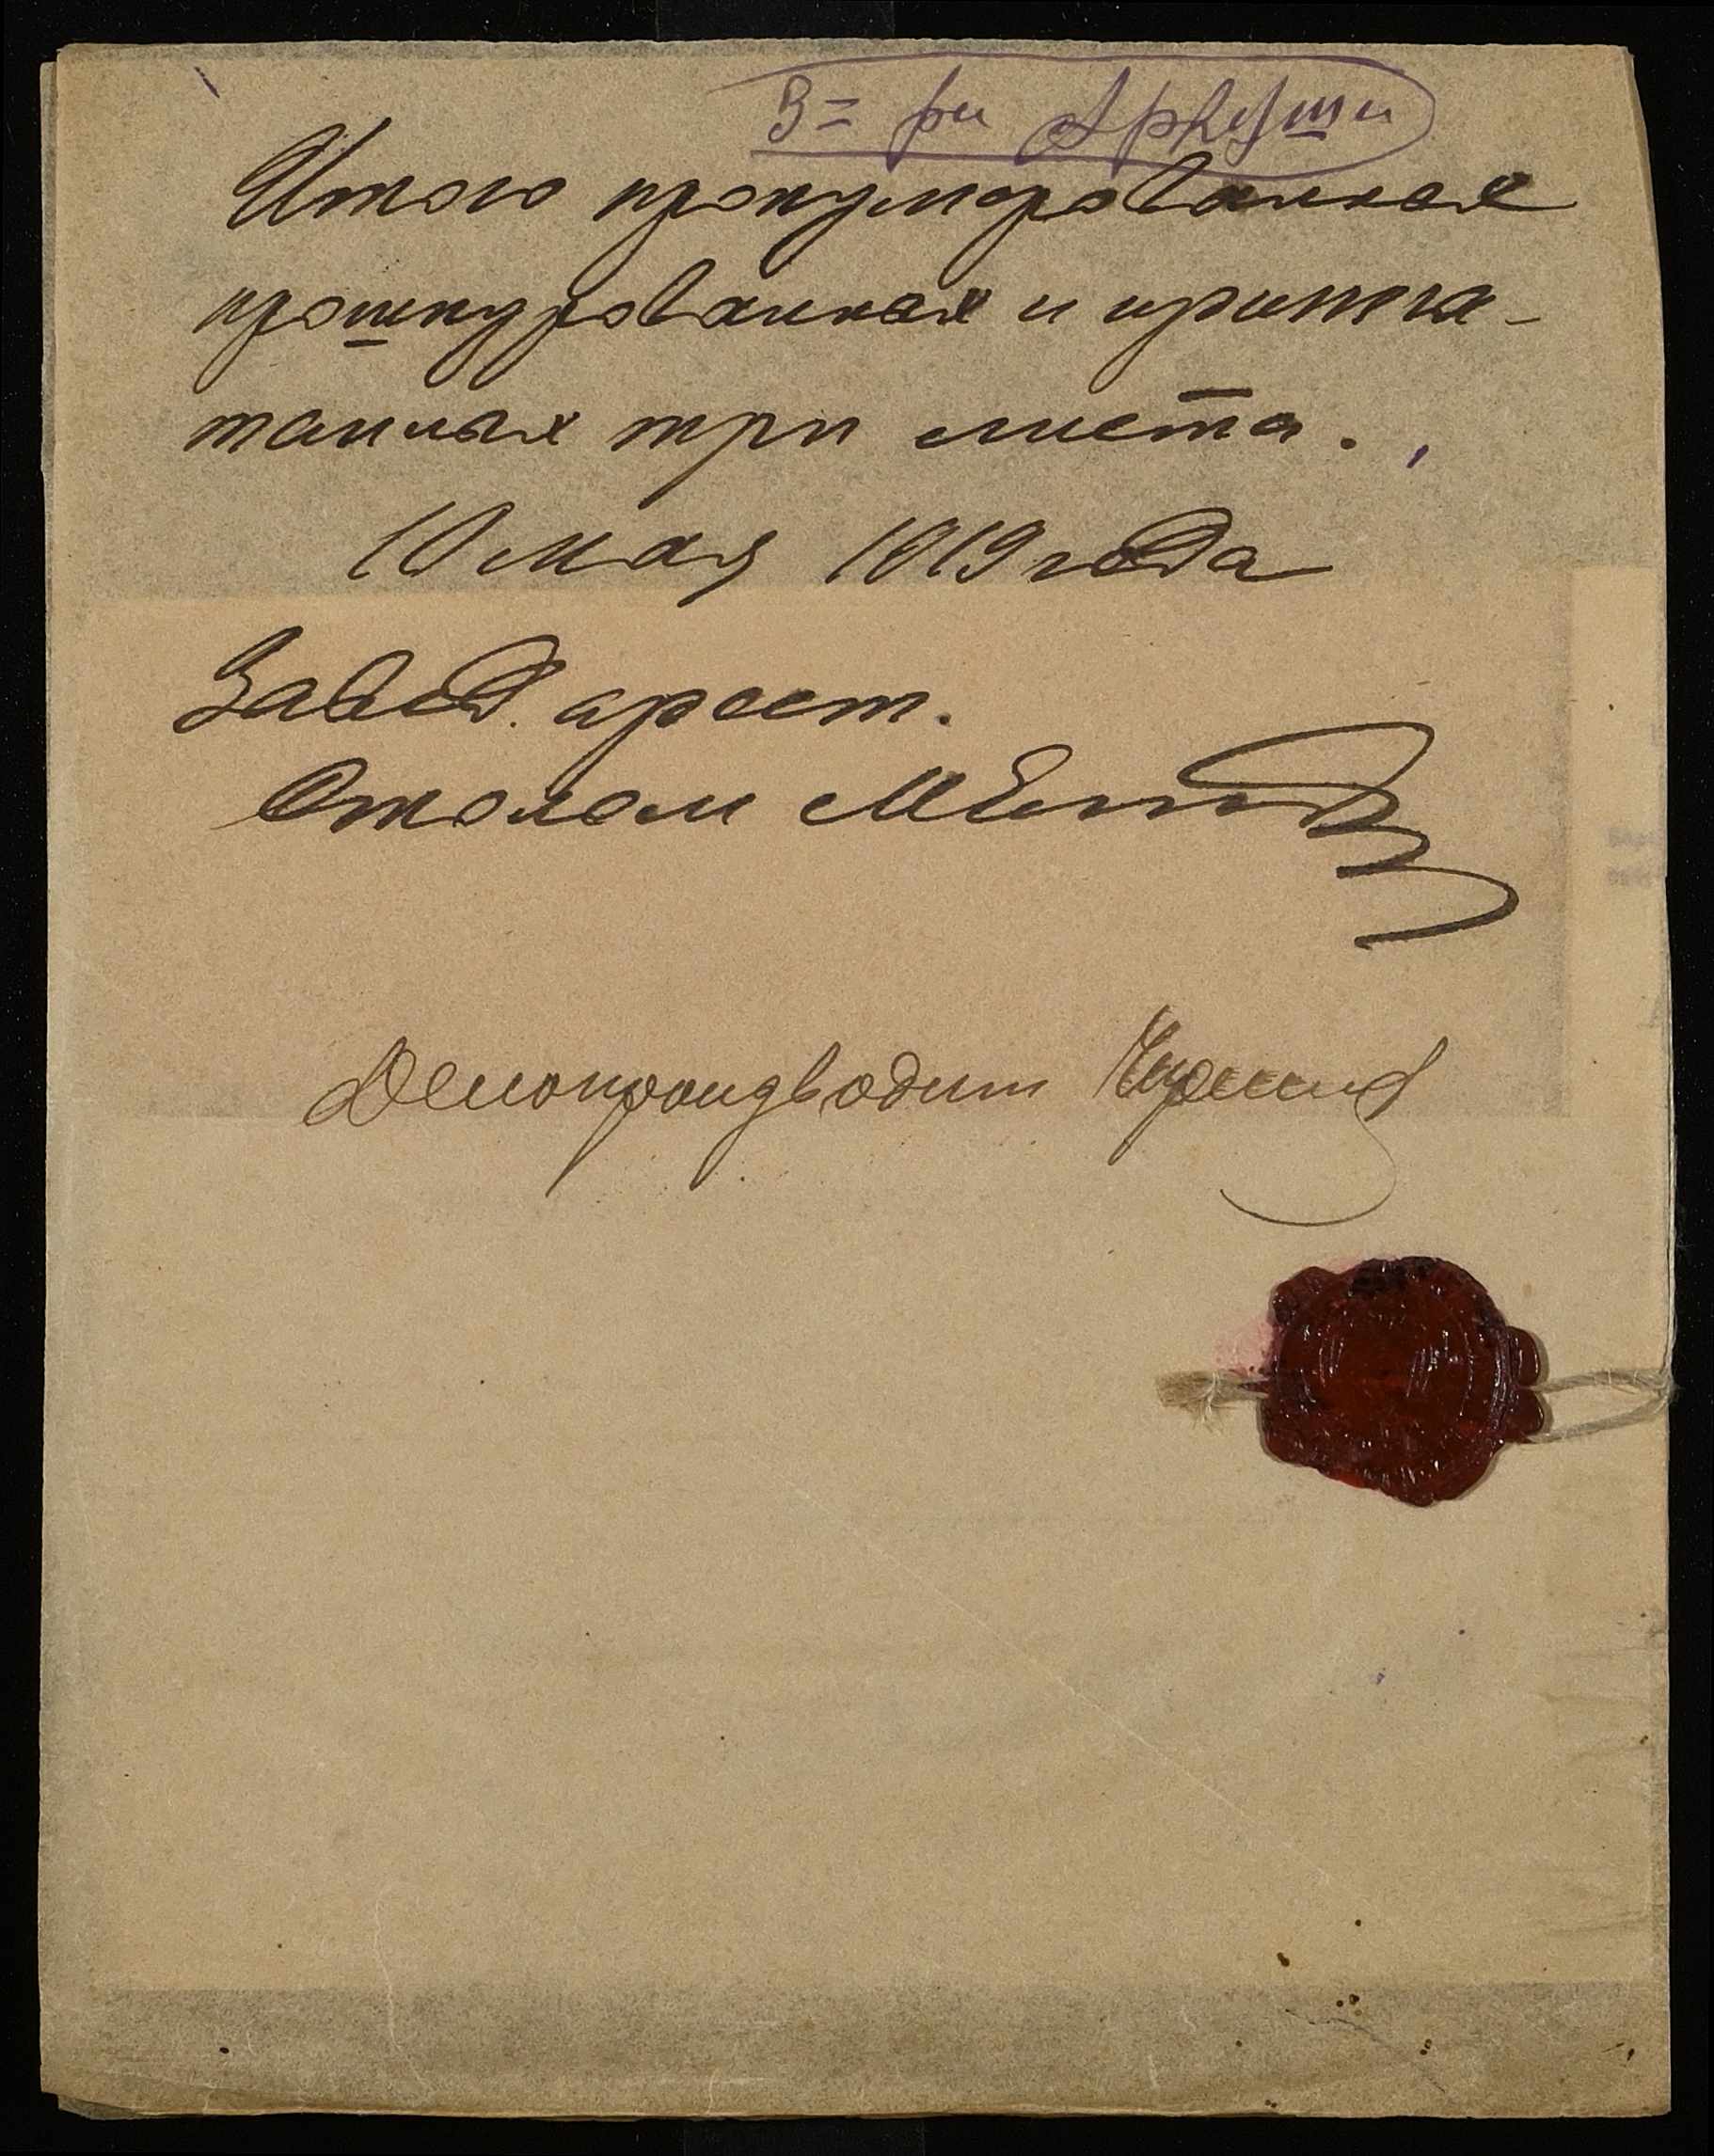 Итого пронумерованных
прошнурованных и припеча-
танных три листа.
10 мая 1919 года
Завед. арест.
Столом
Делопроизводит